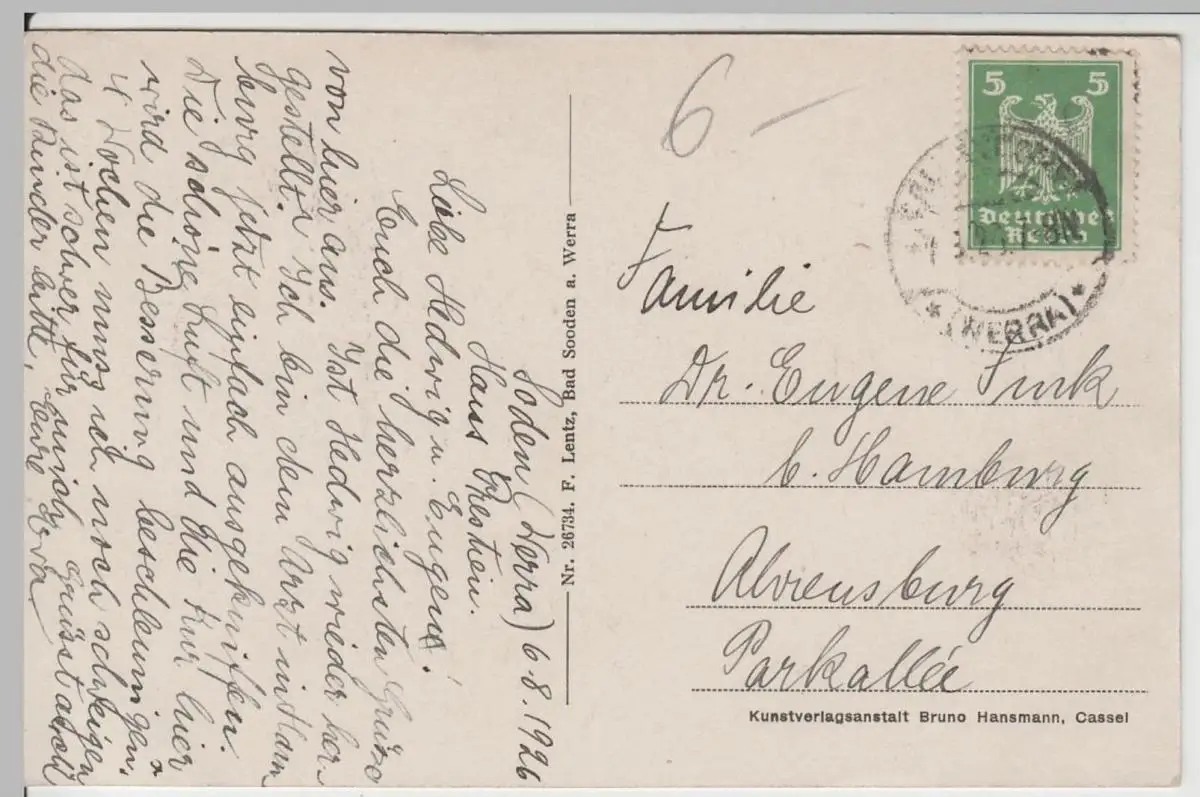 Soden (Werra) 6.8.1926
Haus Chestien.
Liebe Hedwig u. Eugene!
Euch die herzlichsten Grüsse
von hier aus. Ist Hedwig wieder her-
gestellt? Ich bin dem Arzt in Ham
burg jetzt einfach ausgekniffen.
Die schöne Luft und die Kur hier
wird die Besserung beschleunigen.
4 Wochen muss ich noch schweigen
das ist schwer für mich. Grüsst auch
die Kinder bitte, Eure Erra
Nr. 26734. F. Lentz, Bad Sooden a. Werra
6 —
5 5
Deutsches
Reich
* (WERRA) *
Familie
Dr. Eugene Funk
b. Hamburg
Ahrensburg
Parkallée
Kunstverlagsanstalt Bruno Hansmann, Cassel